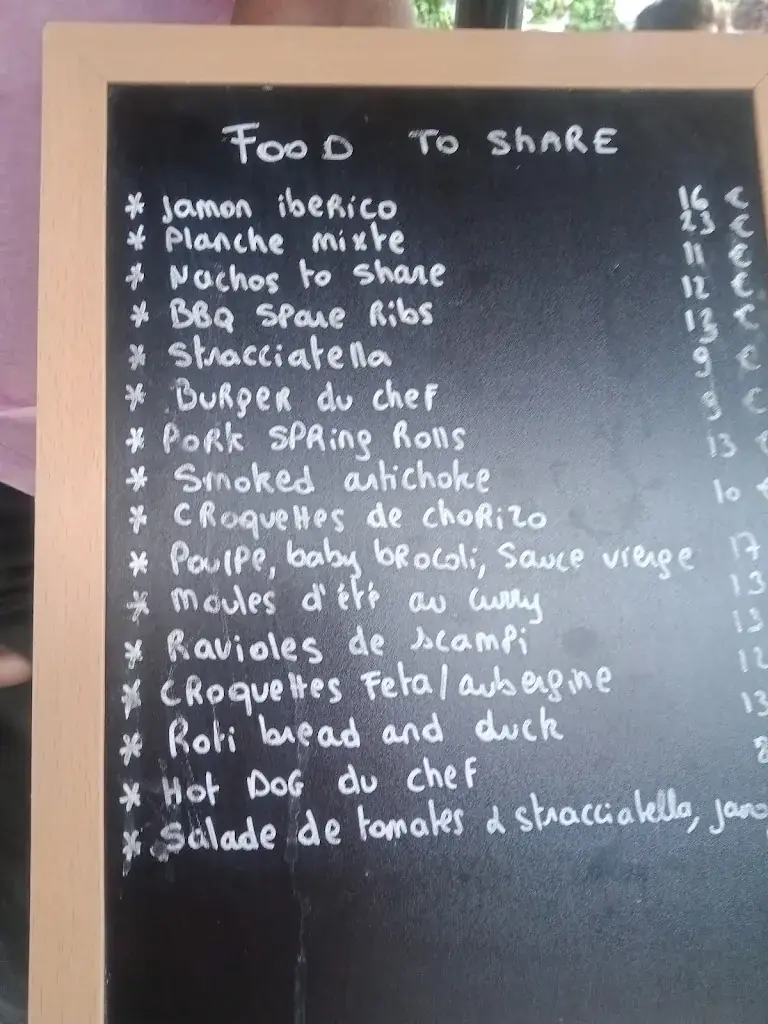 FOOD TO SHARE
* Jamon iberico 16 €
* Planche mixte 23 €
* Nachos to share 11 €
* BBQ Spare Ribs 12 €
* Stracciatella 13 €
* Burger du chef 9 €
* Pork spring Rolls 9 €
* Smoked artichoke 13 €
* Croquettes de chorizo 10 €
* Poulpe, baby brocoli, sauce vierge 17
* Moules d'été au curry 13
* Ravioles de scampi 13
* Croquettes Feta/aubergine 12
* Roti bread and duck 13
* Hot Dog du chef 8
* Salade de tomates & stracciatella,